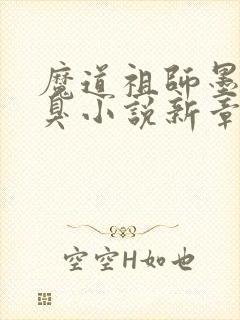 魔道祖師墨
臭小説新章
空空H如也